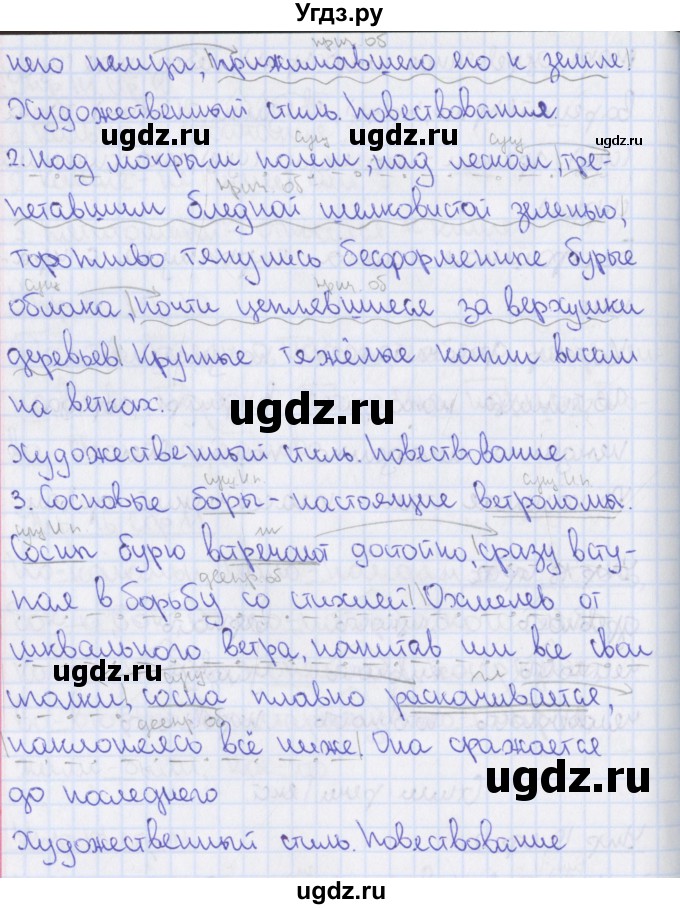 Угдз.ру
прич об
него немца, прижимавшего его к земле
Художественный стиль. Повествование.
ugdz.ru ugdz.ru ugdz.ru
сущ сущ
2. Над мокрым полем, над леском, тре-
прич об
петавшим бледной шелковистой зеленью,
торопливо тянулись бесформенные бурые
сущ прич об
облака, почти цеплявшиеся за верхушки
деревьев. Крупные тяжёлые капли висели
на ветках.
ugdz.ru
Художественный стиль. Повествование
сущ И п. сущ И п.
3. Сосновые боры - настоящие ветроломы.
сущ И п. гл
Сосны бурю встречают достойно, сразу всту-
деепр об
пая в борьбу со стихией. Охмелев от
шквального ветра, напитав им все свои
ugdz.ru
сущ гл
иголки, сосна плавно раскачивается,
деепр об
наклоняясь всё ниже. Она сражается
ugdz.ru
до последнего
Художественный стиль. Повествование
ugdz.ru